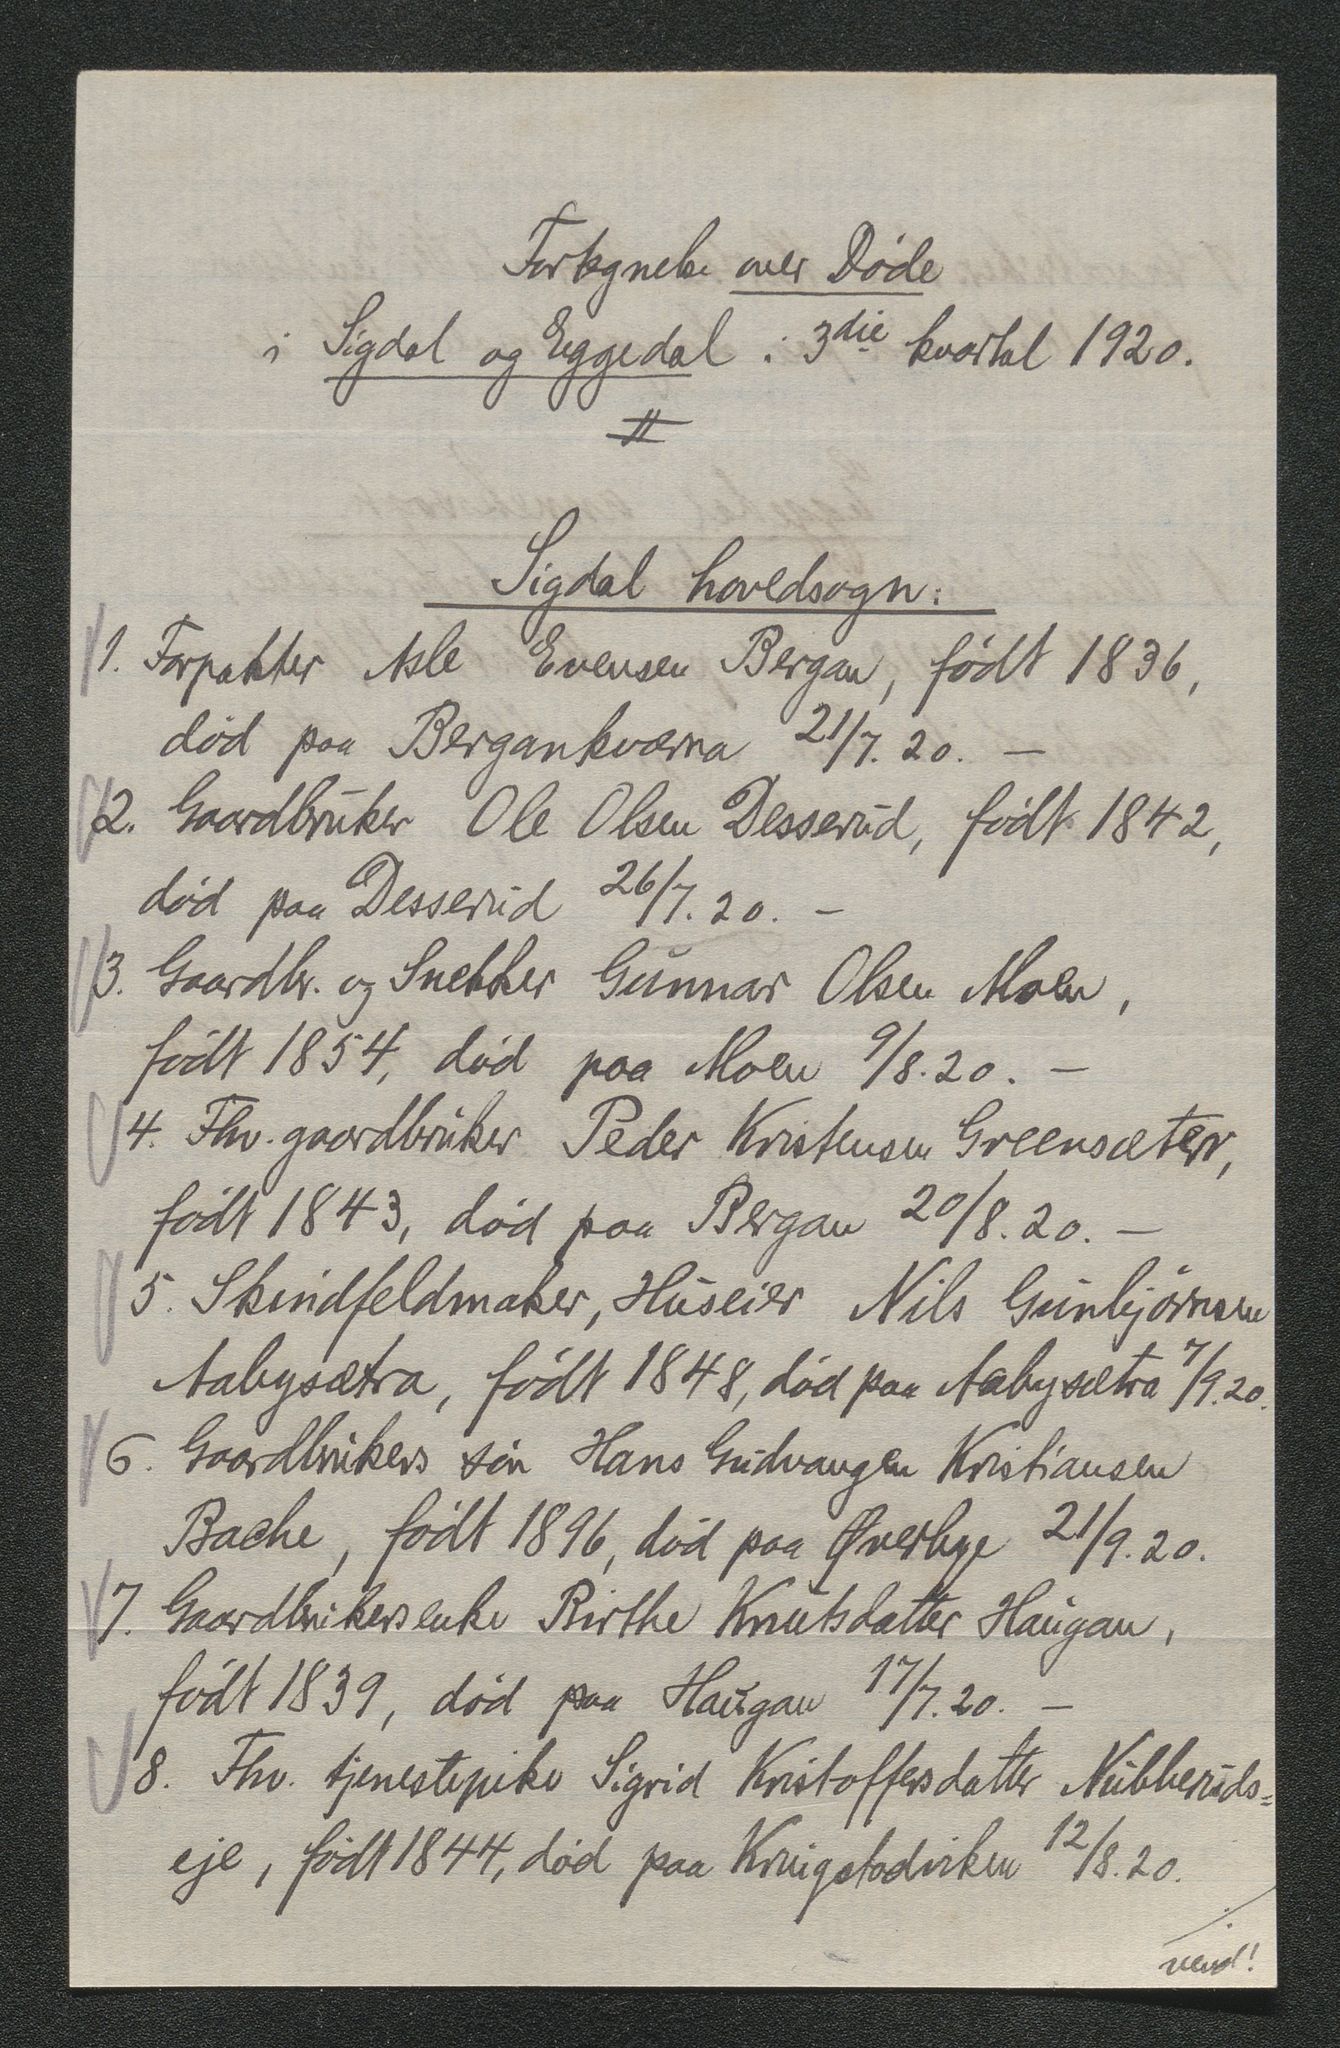 Fortegnelse over Døde
i Sigdal og Eggedal i 3die kvartal 1920.
Sigdal hovedsogn:
1. Forpakter Asle Evensen Bergan, født 1836,
død paa Bergankværna 21/7. 20. —
2. Gaardbruker Ole Olsen Desserud, født 1842,
død paa Desserud 26/7. 20. —
3. Gaardbr. og Snekker Gunnar Olsen Moen,
født 1854, død paa Moen 9/8. 20. —
4. Fhv. gaardbruker Peder Kristensen Greensæter,
født 1843, død paa Bergan 20/8. 20. —
5. Skindfeldmaker, Huseier Nils Gunbjørnsen
Aabysætra, født 1848, død paa Aabysætra 7/9. 20.
6. Gaardbrukers søn Hans Gudvangen Kristiansen
Bache, født 1896, død paa Øverbye 21/9. 20.
7. Gaardbrukersenke Birthe Knutsdatter Haugan,
født 1839, død paa Haugan 17/7. 20. —
8. Fhv. tjenestepike Sigrid Kristoffersdatter Nubberuds=
eje, født 1844, død paa 12/8. 20.
vend!